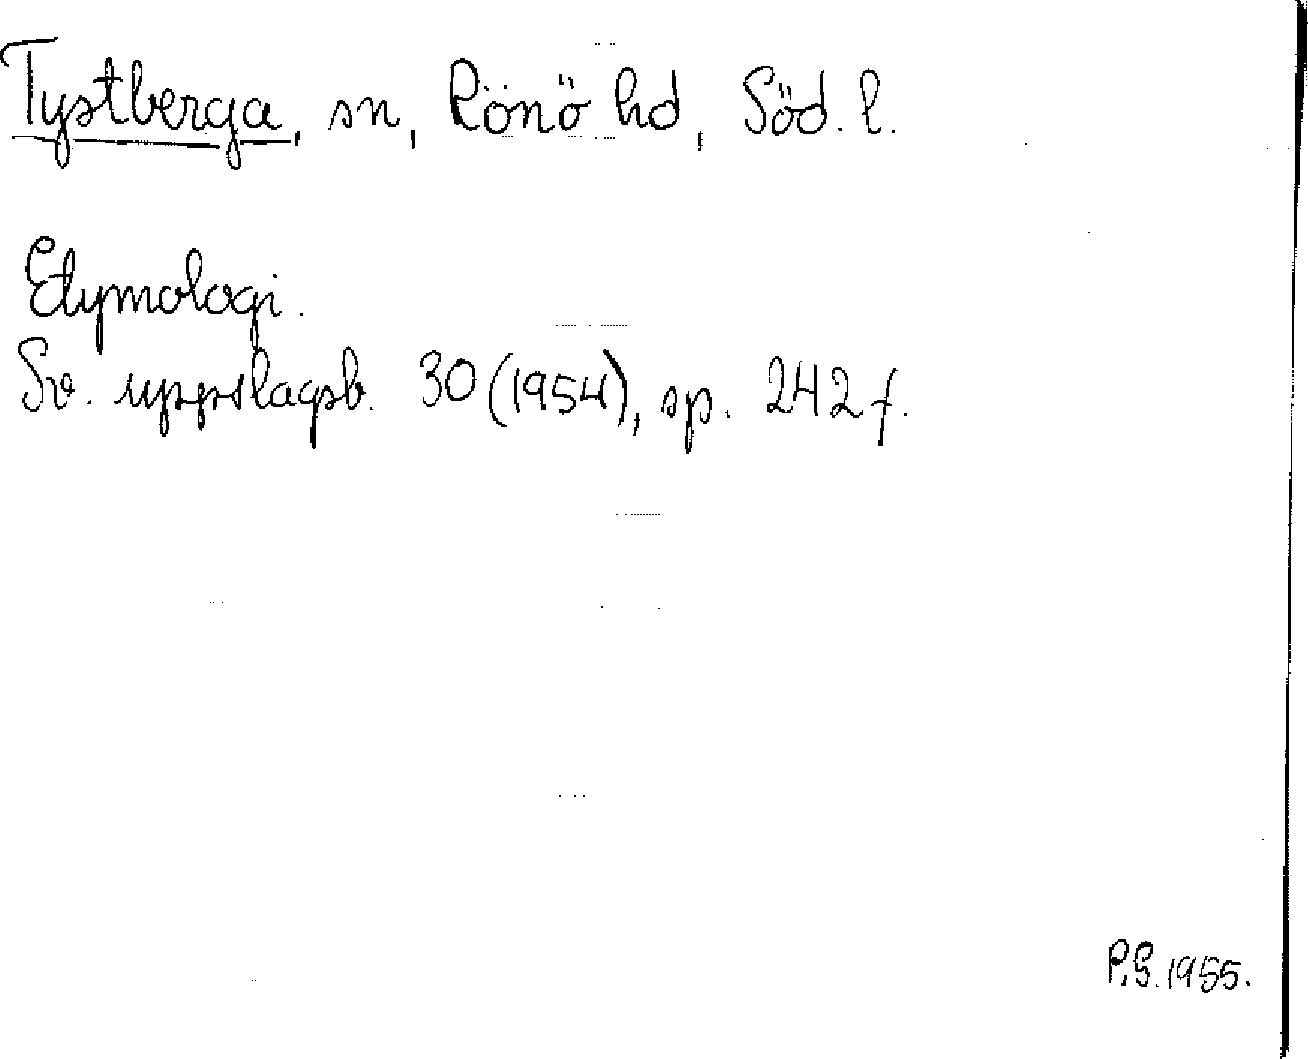 Tystberga, sn, Rönö hd, Söd. l.
Etymologi.
Sv. uppslagsb. 30 (1954), sp. 242 f.
P.S. 1955.